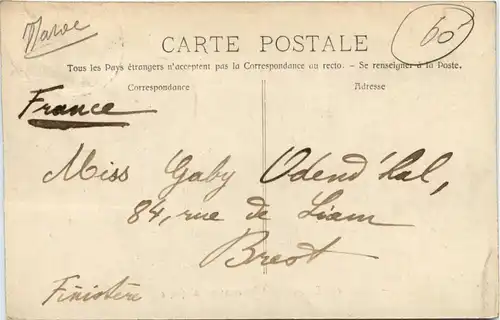 Maroc
60
CARTE POSTALE
Tous les Pays étrangers n'acceptent pas la Correspondance au recto. - Se renseigner à la Poste.
Correspondance
Adresse
France
Miss Gaby Odend'hal,
84, rue de Siam
Brest
Finistère